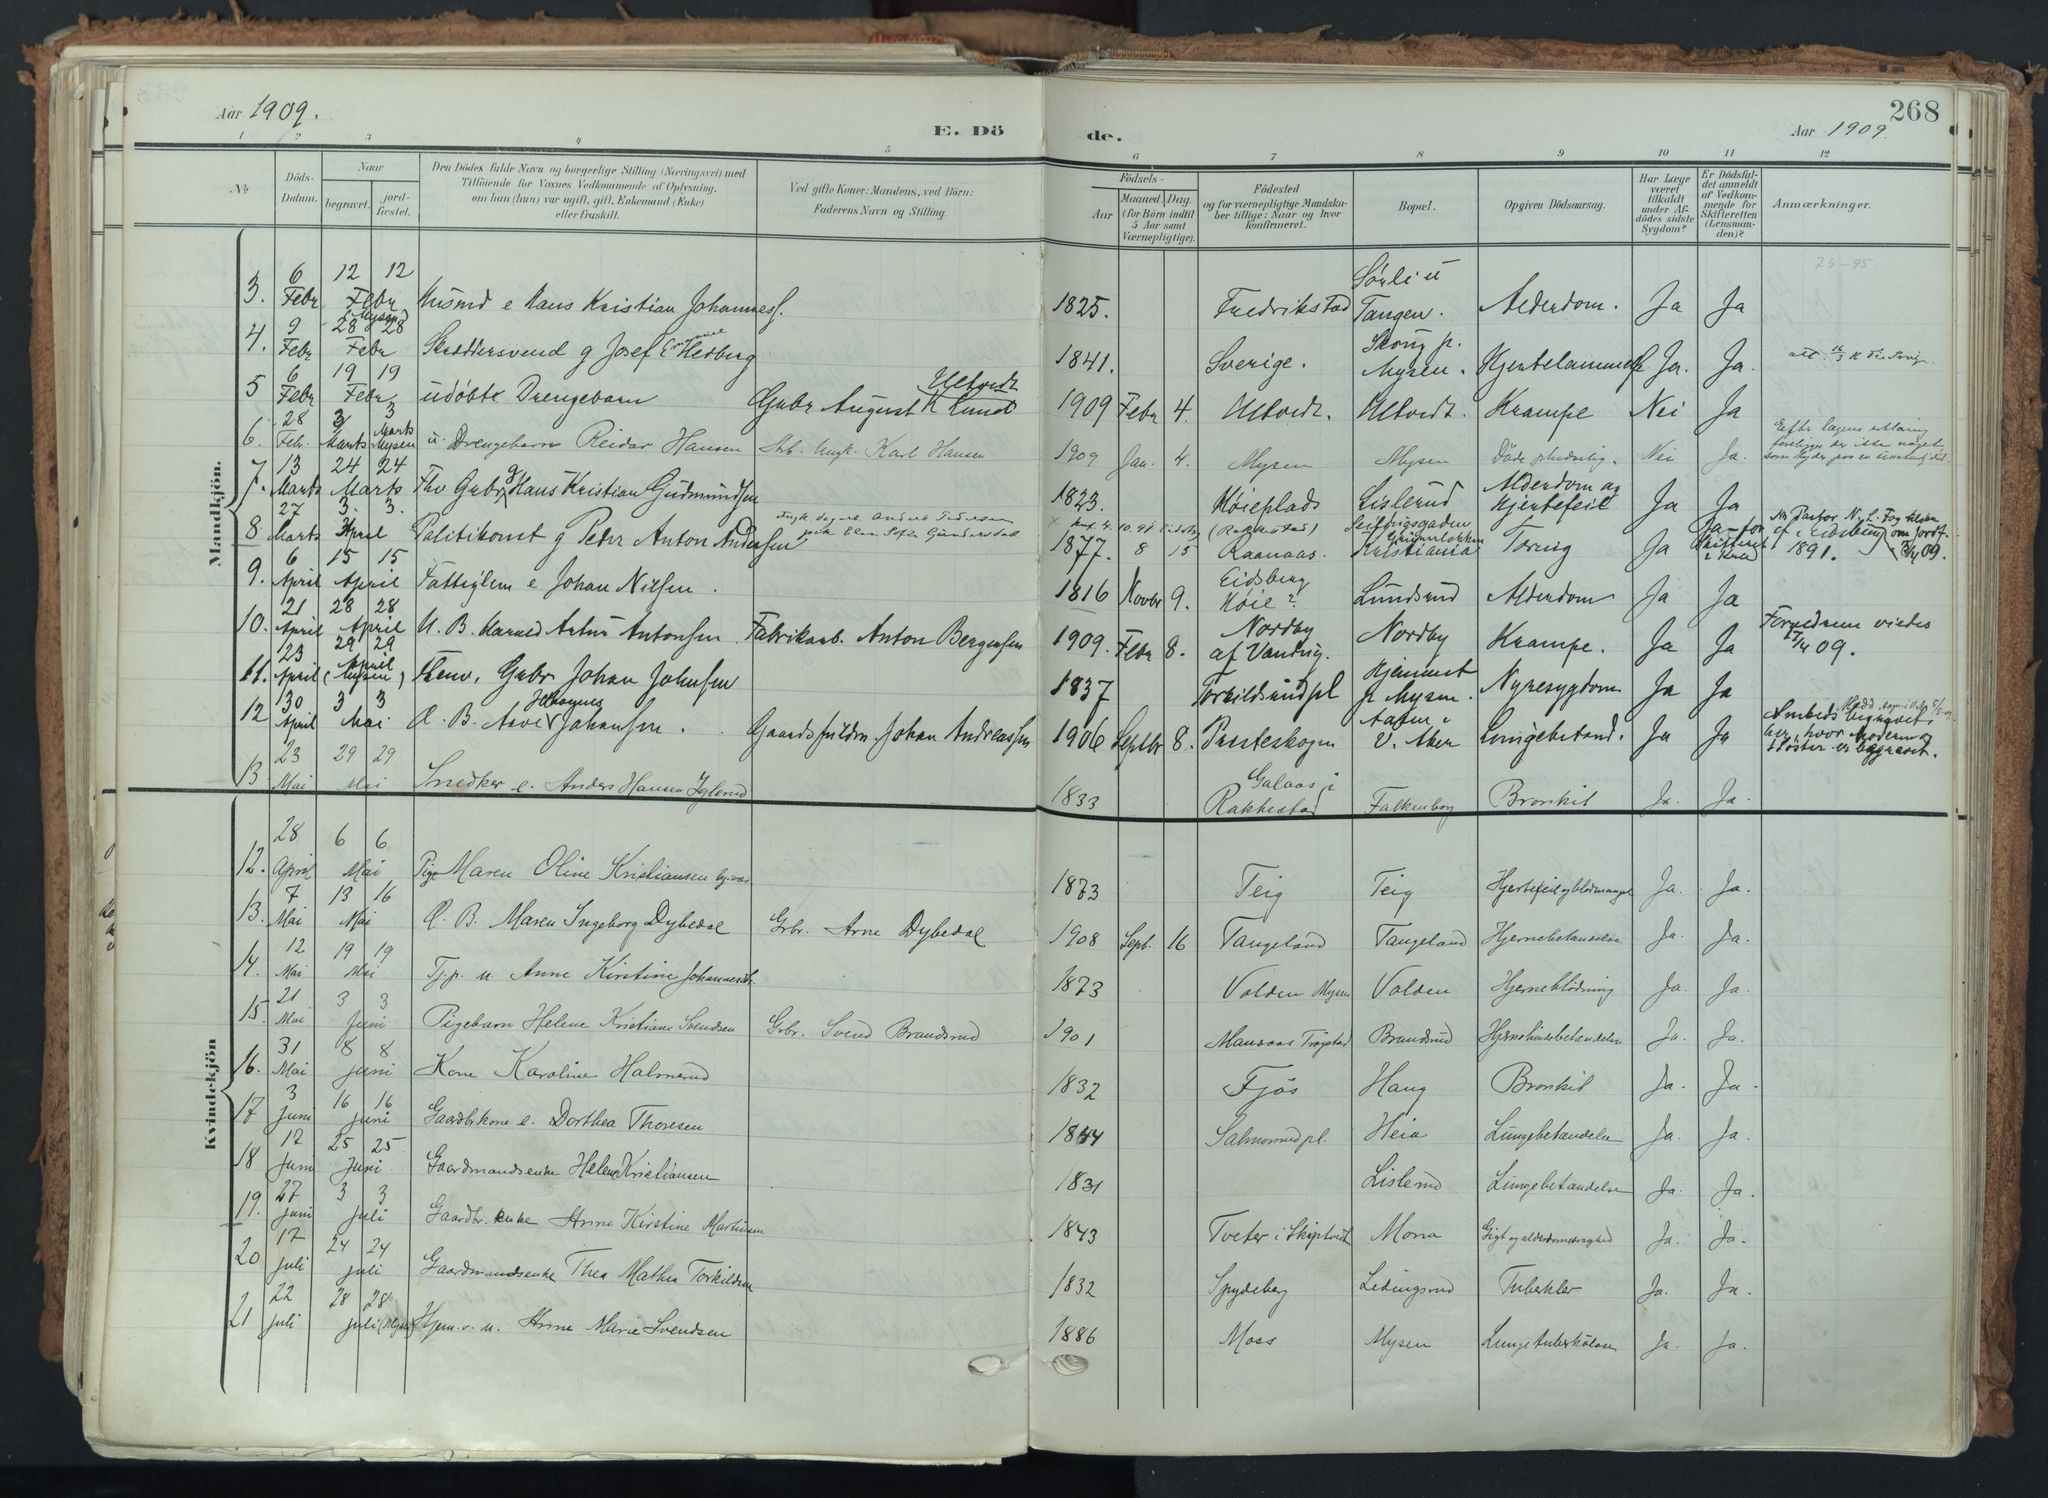 Aar 1909.
E. Dö
de.
268
Aar 1909.
1 2 3 4 5
6 7 8 9 10 11 12
No
Döds-Datum.
Naar
begravet.
jord-fæstet.
Den Dödes fulde Navn og borgerlige Stilling (Næringsvei) med
Tilföiende for Voxnes Vedkommende af Oplysning,
om han (hun) var ugift, gift, Enkemand (Enke)
eller fraskilt.
Ved gifte Koner: Mandens, ved Börn:
Faderens Navn og Stilling.
Födsels-
Aar
Maaned. Dag.
(for Börn indtil
5 Aar samt
Værnepligtige).
Födested
og for værnepligtige Mandska-
ber tillige: Naar og hvor
konfirmeret.
Bopæl.
Opgiven Dödsaarsag.
Har Læge
været
tilkaldt
under Af-
dödes sidste
Sygdom?
Er Dödsfal-
det anmeldt
af Vedkom-
mende for
Skifteretten
(Lensman-
den)?
Anmærkninger.
Mandkjön.
3. 6 Febr 12 12 Febr Husmd e Hans Kristian Johanness. 1825. Fredrikstad Sörli u Tangen. Alderdom. Ja Ja
74-95
4. 9 Febr 28 28 Febr (Mysen) Skræddersvend g Josef Hedberg 1841. Sverige. Skoug p. Mysen. Ja. Ja.
5 6 Febr 19 19 Febr udöbt Drengebarn Gubr August K Lund Ultvedt 1909 Febr 4. Ultvedt. Ultvedt. Krampe Nei Ja
6. 28 Febr. 3 Marts 3 Marts Mysen u. Drengebarn Reidar Hansen Karl Hansen 1909 Jan. 4. Mysen Mysen Döde pludselig. Nei Ja. Efter lægens erklæring foreligger der ikke noget
7. 13 Marts 24 24 Marts Fhv Gubr g Hans Kristian Gudmundsen 1823. Höieplads Lislerud Alderdom og Hjertefeil Ja Ja
8 27 Marts 3. 3. April Politikonst g Peter Anton Andersen 1877. 8 15 (Rakkestad) Raanaas. Kristiania Tæring Ja 1891.
9. 6 April 15 15 April Fattiglem e Johan Nilsen. 1816 Novbr 9. Eidsberg Höie? Lundsrud Alderdom Ja Ja
10. 21 April 28 28 April U. B. Harald Artur Antonsen Fabrikarb. Anton Bergersen 1909. Febr 8. Nordby af Vandug. Nordby Krampe. Ja Ja 17/4 09.
11. 23 April 29 29 April (Mysen) Gubr Johan Johnsen 1837 Torkildsrudpl Hjemmet p Mysen. Nyresygdom Ja Ja
12 30 April 3 3 Mai Æ. B. Johannes Johansen. Johan Andreassen 1906 Septbr 8. Presteskogen V. Aker Lungebetænd. Ja Ja
13. 23 Mai 29 29 Mai Snedker e. Anders Hansen Iglerud 1833 Galaas i Rakkestad Falkenborg Bronkit Ja. Ja.
Kvindekjön
12. 28 April 6 6 Mai Pige Maren Oline Kristiansen 1873 Teig Teig Hjertefeil og blodmangel Ja. Ja.
13. 7 Mai 13 16 Mai Æ. B. Maren Ingeborg Dybedal Grbr. Arne Dybedal 1908 Sept. 16 Tangeland Tangeland Hjernebetændelse Ja. Ja.
14. 12 Mai 19 19 Mai Tj.p. u. Anne Kirstine Johannesdtr. 1873 Volden Mysen Volden Hjerneblödning Ja. Ja.
15. 21 Mai 3 3 Juni Pigebarn Helene Kristiane Svendsen Grbr. Svend Brandsrud 1901 Mansaas Trögstad Brandsrud Hjernehindebetændelse Ja. Ja.
16. 31 Mai 8 8 Juni Kone Karoline Halmerud 1832 Fjös Haug Bronkit Ja. Ja.
17 3 Juni 16 16 Juni Gaardbrkone e. Dorthea Thoresen 1844 Salmonrudpl. Heia Lungebetændelse Ja. Ja.
18 17 Juni 25 25 Juni Gaardmandsenke Helene Kristiansen 1831 Lislerud Lungebetændelse Ja. Ja.
19. 27 Juni 3 3 Juli Gaardbr. enke Anne Kirstine Martinsen 1843 Tveter i Skiptvedt Mona Gigt og alderdomssvaghed Ja. Ja.
20 17 Juli 24 24 Juli Gaardmandsenke Thea Mathea Torkildsen 1832 Spydeberg Ledingsrud Tuberkler Ja. Ja.
21 22 Juli 28 28 Juli (Mysen) Hjem.v. u. Anne Marie Svendsen 1886 Moss Mysen Lungetuberkulose Ja. Ja.